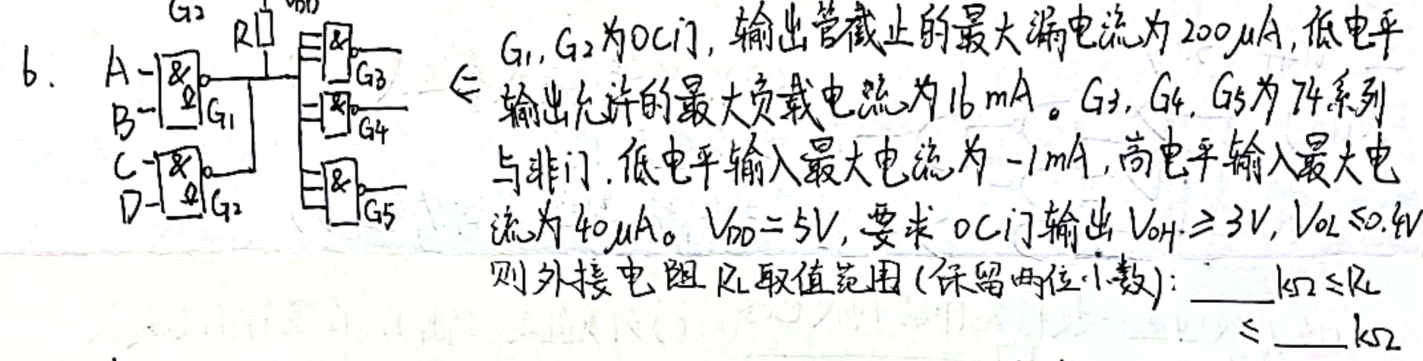 G2 VDD
R
6. A B C D & & G1 G2 & & & G3 G4 G5
⇐ G1, G2为OC门, 输出管截止的最大漏电流为200μA, 低电平
输出允许的最大负载电流为16mA。G3, G4, G5为74系列
与非门, 低电平输入最大电流为-1mA, 高电平输入最大电
流为40μA。VDD=5V, 要求OC门输出VOH≥3V, VOL≤0.4V
则外接电阻RL取值范围(保留两位小数): ____kΩ≤RL
≤ ____kΩ